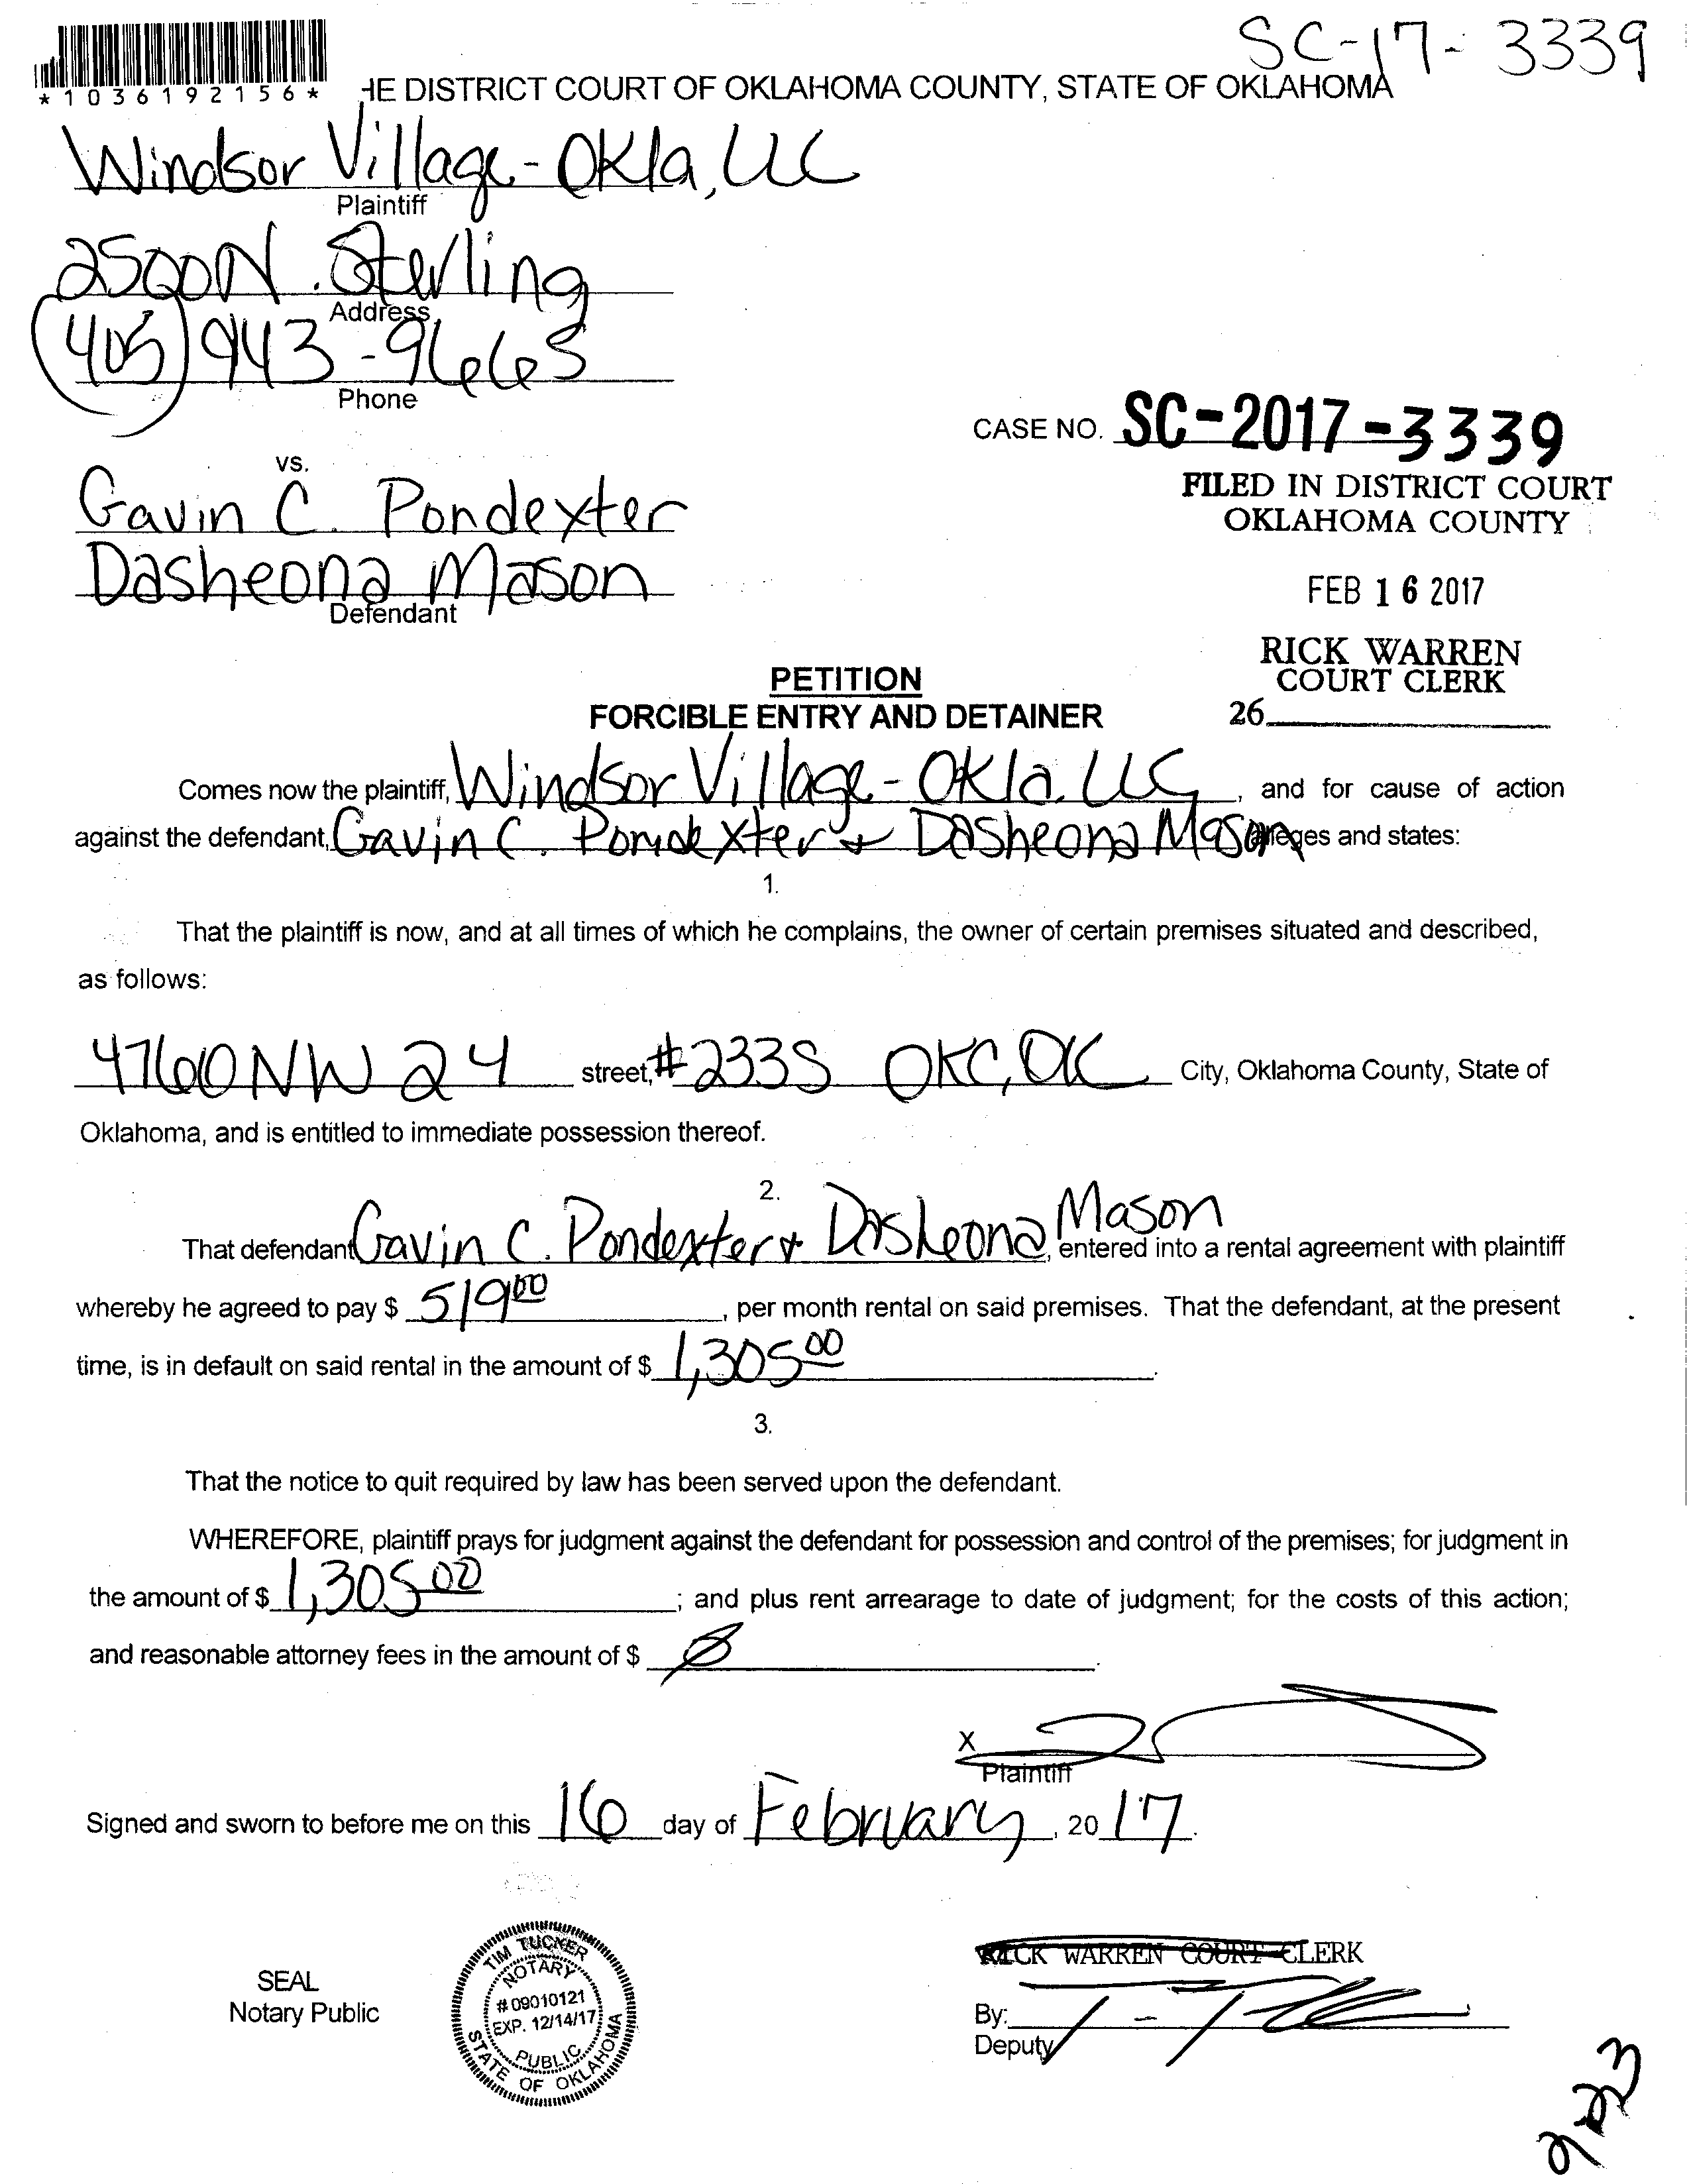 SC-17-3339
*1036192156*
HE DISTRICT COURT OF OKLAHOMA COUNTY, STATE OF OKLAHOMA
Windsor Village-Okla, LLC
Plaintiff
2500 N. Sterling
Address
(405) 943-9665
Phone
CASE NO. SC-2017-3339
FILED IN DISTRICT COURT
OKLAHOMA COUNTY
FEB 16 2017
RICK WARREN
COURT CLERK
26
vs.
Gavin C. Pondexter
Dasheona Mason
Defendant
PETITION
FORCIBLE ENTRY AND DETAINER
Comes now the plaintiff, Windsor Village-Okla. LLC, and for cause of action
against the defendant, Gavin C. Pondexter & Dasheona Mason alleges and states:
1.
That the plaintiff is now, and at all times of which he complains, the owner of certain premises situated and described,
as follows:
4760 NW 24 street, #233S OKC, OK City, Oklahoma County, State of
Oklahoma, and is entitled to immediate possession thereof.
2.
That defendant Gavin C. Pondexter & Dasheona Mason, entered into a rental agreement with plaintiff
whereby he agreed to pay $ 519.00, per month rental on said premises. That the defendant, at the present
time, is in default on said rental in the amount of $ 1,305.00.
3.
That the notice to quit required by law has been served upon the defendant.
WHEREFORE, plaintiff prays for judgment against the defendant for possession and control of the premises; for judgment in
the amount of $ 1,305.00; and plus rent arrearage to date of judgment; for the costs of this action;
and reasonable attorney fees in the amount of $ Ø.
X
Plaintiff
Signed and sworn to before me on this 16 day of February, 2017.
SEAL
Notary Public
TIM TUCKER
NOTARY
# 09010121
EXP. 12/14/17
PUBLIC
STATE OF OKLAHOMA
RICK WARREN COURT CLERK
By:
Deputy